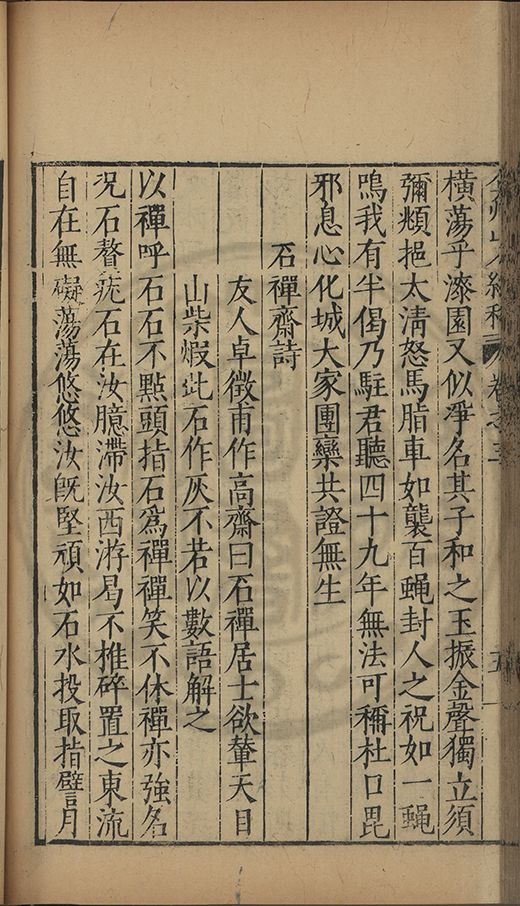 弇州山人續稿 卷之三 五
橫蕩乎漆園又似淨名其子和之玉振金聲獨立須
彌頫挹太清怒馬脂車如襲百蠅封人之祝如一蠅
鳴我有半偈乃駐君聽四十九年無法可稱杜口毘
邪息心化城大家團欒共證無生
石禪齋詩
友人卓徵甫作高齋曰石禪居士欲輦天目
山柴煆此石作灰不若以數語解之
以禪呼石石不點頭指石爲禪禪笑不休禪亦強名
况石贅疣石在汝臆滯汝西游曷不椎碎置之東流
自在無礙蕩蕩悠悠汝旣堅頑如石水投取指譬月